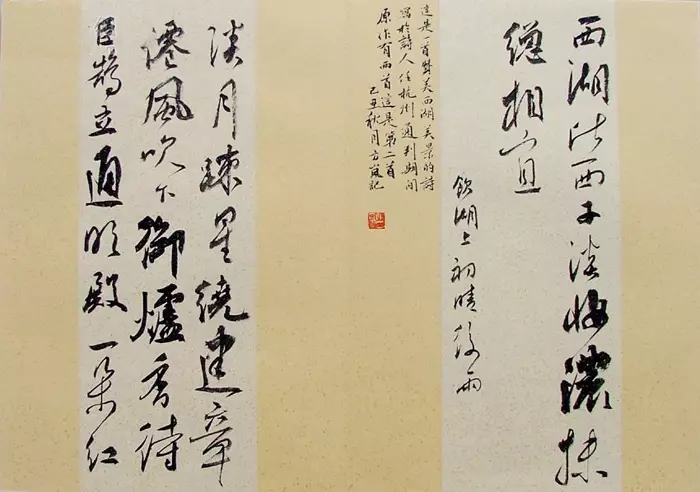 西湖比西子淡妝濃抹
總相宜
飲湖上初晴後雨
這是一首贊美西湖美景的詩
寫於詩人任杭州通判期間
原作有兩首這是第二首
己丑秋月方記
淡月疎星繞建章
僊風吹下御爐香侍
臣鵠立通明殿一朵紅